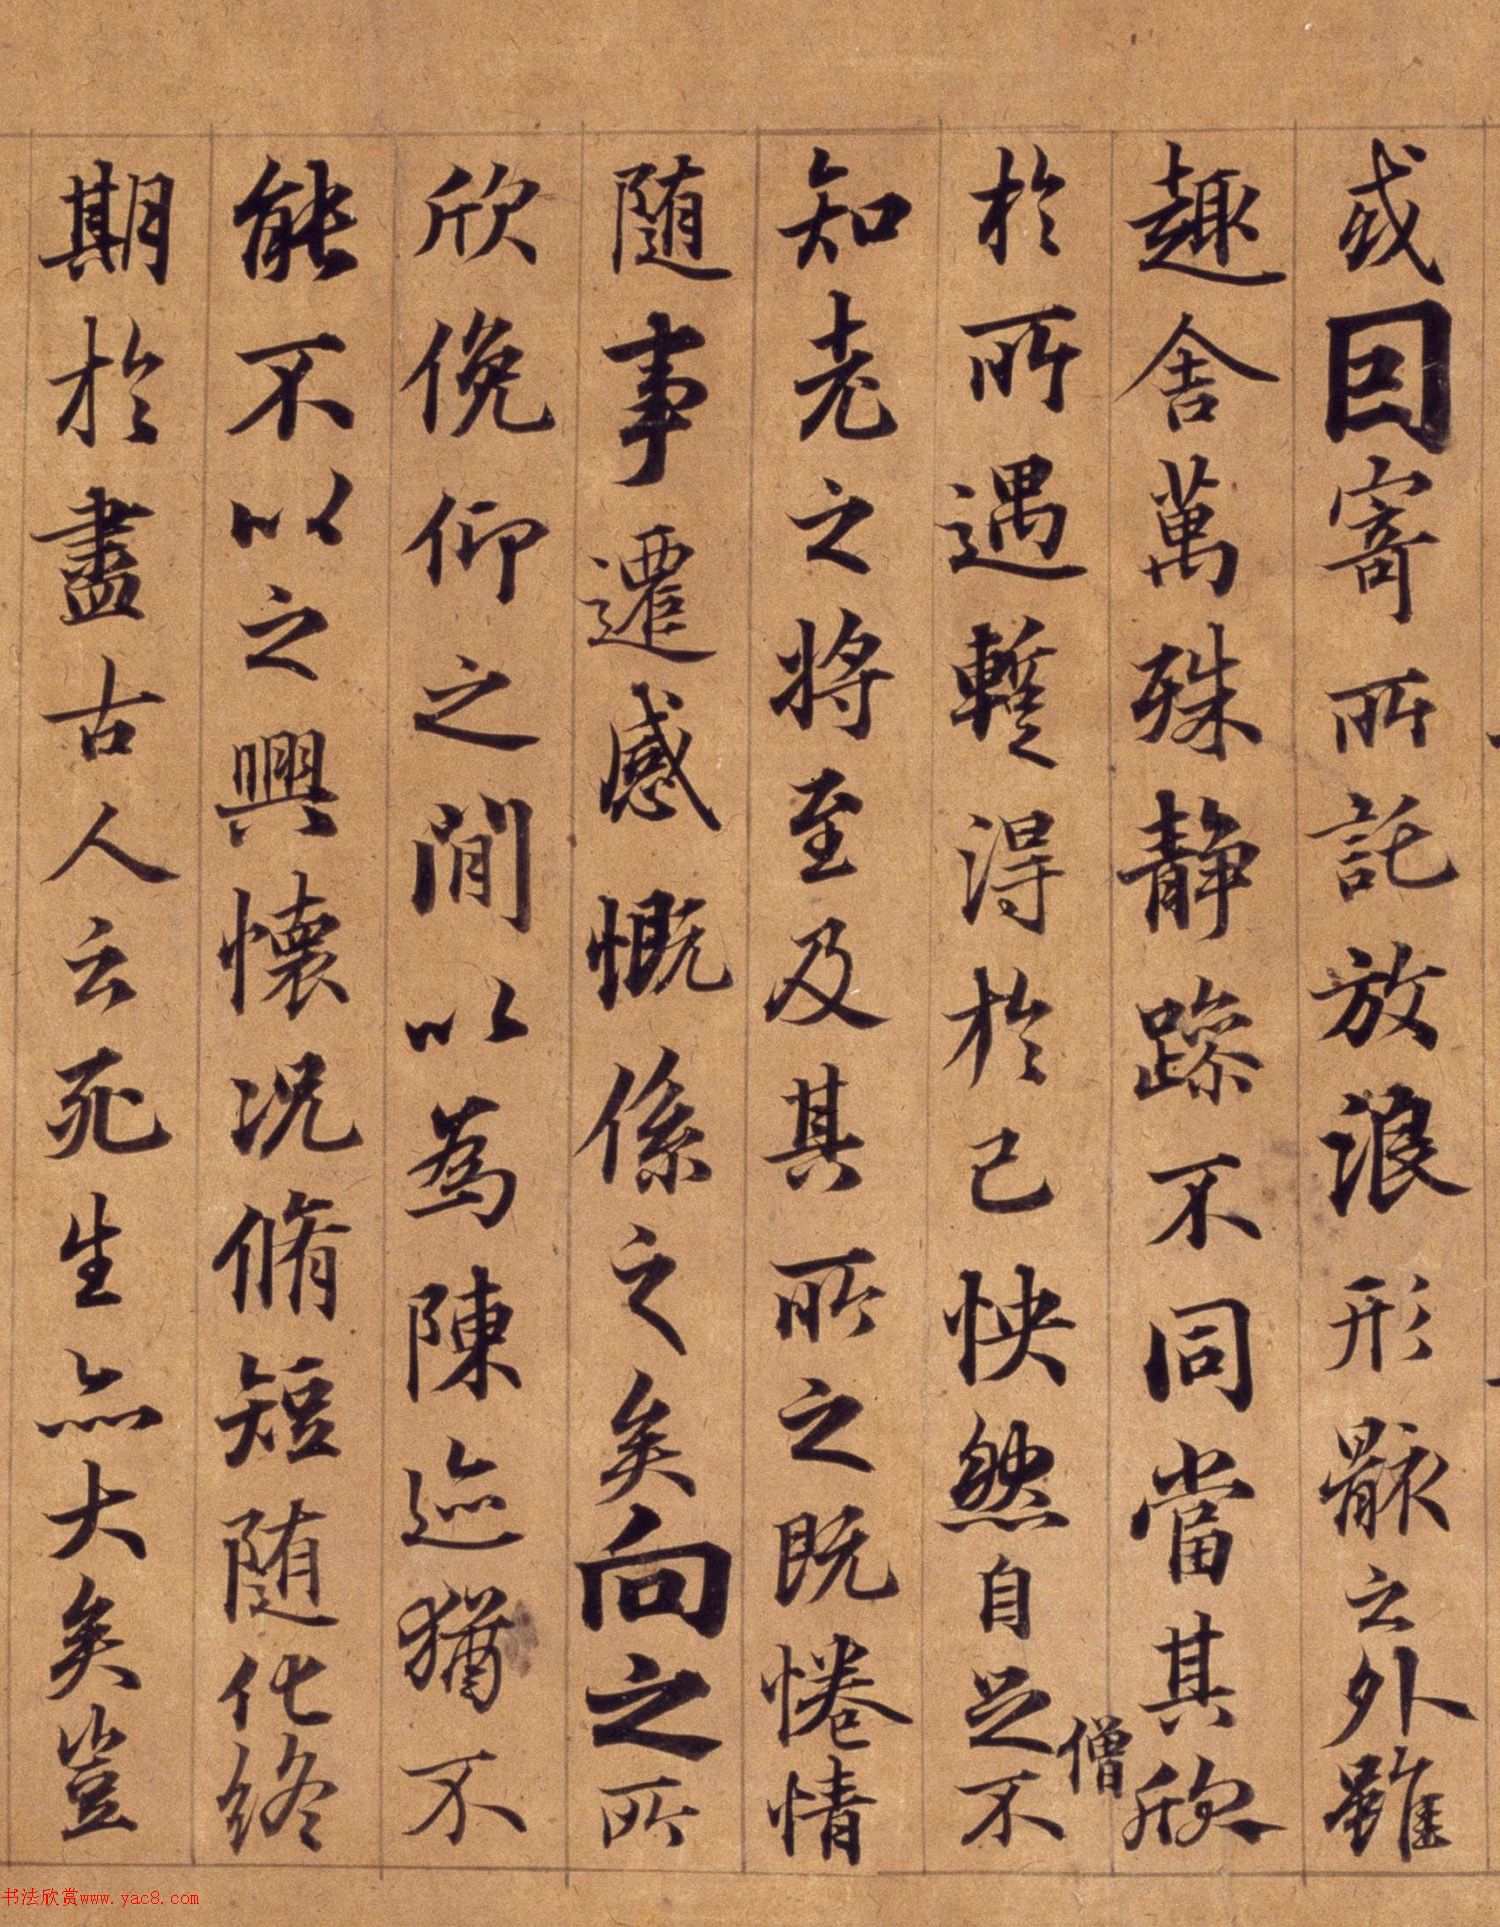 或因寄所託放浪形骸之外雖
趣舍萬殊静躁不同當其欣
僧
於所遇蹔得於己怏然自足不
知老之將至及其所之既惓情
随事遷感慨係之矣向之所
欣俛仰之閒以為陳迹猶不
能不以之興懷況脩短随化終
期於盡古人云死生亦大矣豈
书法欣赏www.yac8.com